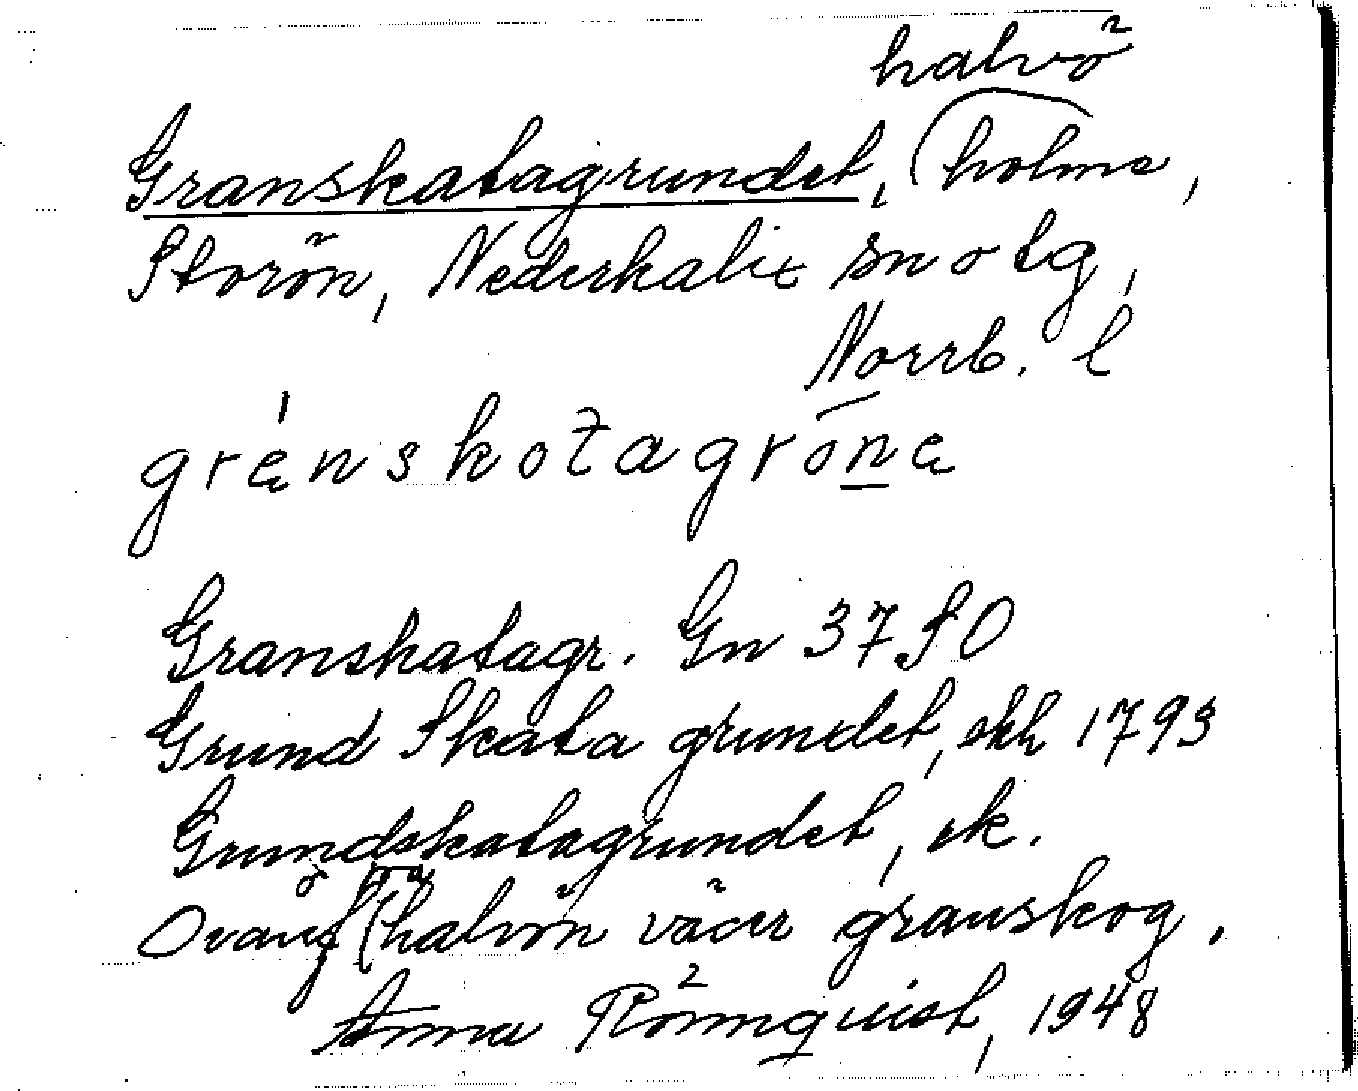 halvö
Granskatagrundet, (holme,
Storön, Nederkalix sn o tg,
Norrb. l
grenskotagrōne
Granskatagr. Gn 37 SO
Grund Skata grundet, skh 1793
Grundskatagrundet, ek.
på
Ovanf (halvön växer granskog.
Anna Rönnquist, 1948